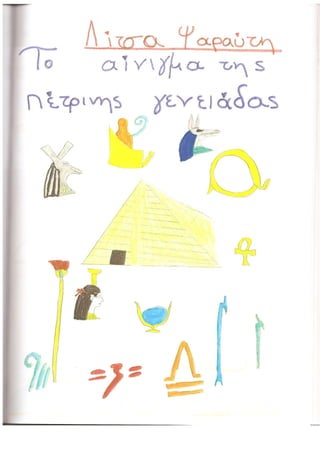 Λίτσα Ψαραύτη
Το αίνιγμα της
πέτρινης γενειάδας